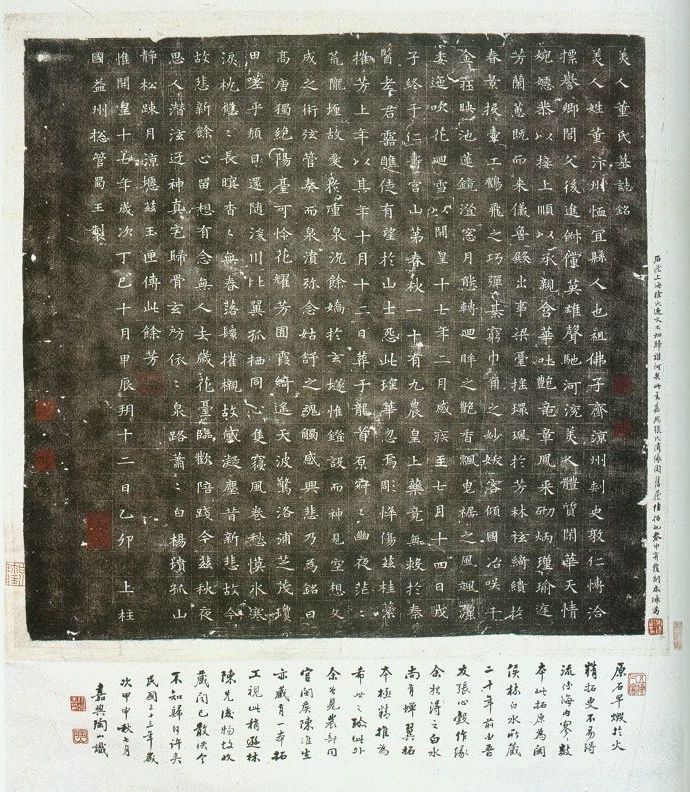 美人董氏墓誌銘
美人姓董汴州恤宜縣人也祖佛子齊涼州刺史敦仁博洽
標譽鄉閭父後進俶儻英雄聲馳河浣美人體質閑華天情
婉嫕恭以接上順以承親含華吐艷竜章鳳采砌炳瑾瑜庭
芳蘭蕙既而来儀魯殿出事梁臺搖環珮於芳林袨綺繢於
春景投壺工鶴飛之巧彈棊窮巾角之妙妖容傾國冶咲千
金莊映池蓮鏡澄窓月態轉迴眸之艷香飄曳裾之風颯灑
委迤吹花迴雪以開皇十七年二月感疾至七月十四日戊
子終于仁壽宮山第春秋一十有九農皇上藥竟無救於秦
醫老君靈醮徒有望於山士怨此瑤華忽焉彫悴傷茲桂蘂
摧芳上年以其年十月十二日葬于龍首原寂〻幽夜茫〻
荒隴埋故愛於重泉沉餘嬌於玄隧惟鐙設而神見空想文
成之術弦管奏而泉濆彌念姑舒之魂觸感興悲乃為銘曰
高唐獨絕陽臺可怜花耀芳囿霞綺遙天波驚洛浦芝茂瓊
田嗟乎頹日還隨浚川比翼孤栖同心隻寢風卷愁慔冰寒
淚枕悠〻長暝杳〻無春落鬟摧櫬故黛凝塵昔新悲故今
故悲新餘心留想有念無人去歲花臺臨歡陪踐今茲秋夜
思人潛泫迒神真宅歸骨玄房依〻泉路蕭〻白楊墳孤山
静松踈月涼瘞茲玉匣傳此餘芳
惟開皇十七年歲次丁巳十月甲辰朔十二日乙卯 上柱
國益州揔管蜀王製
原石早燬於火
精拓史不易得
流傳海內寥〻數
本此拓原為閩
侯林白水所藏
二十年前亡吾
友張心穀作緣
余得之白水
尚有蟬翼拓
本極精推為
希世之珍此外
余曾見農部同
官閩侯陳淮生
亦藏有一本拓
工視此稍遜林
陳先後物故收
藏聞已散佚今
不知歸何許矣
民國三十三年歲
次甲申秋七月
嘉興陶識